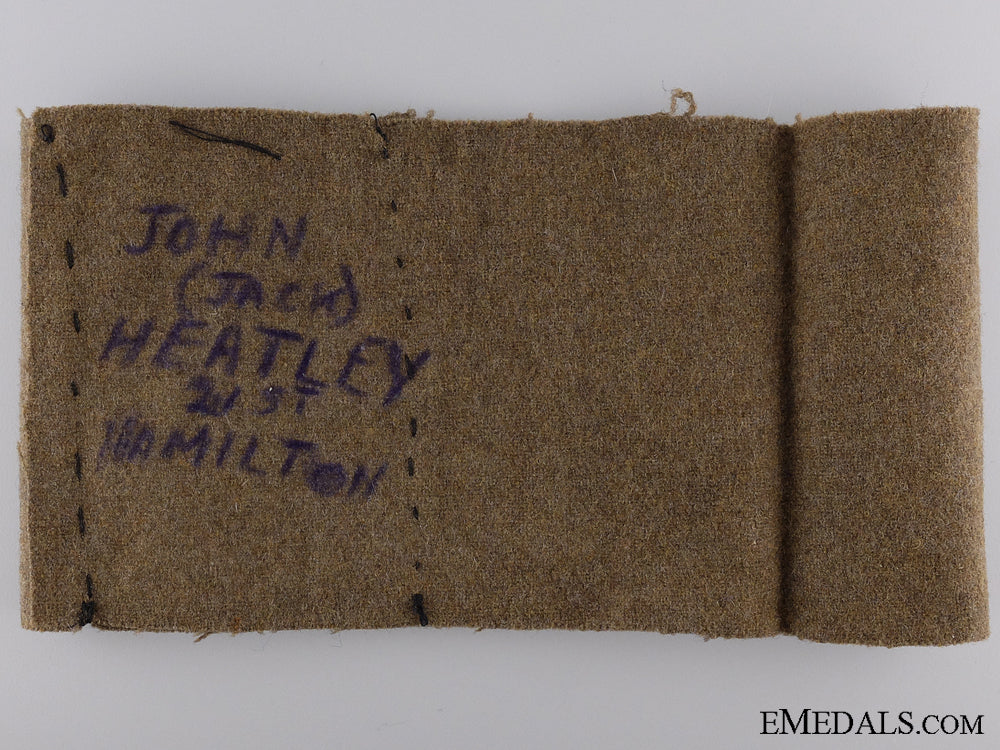 JOHN
(JACK)
HEATLEY
HAMILTON
EMEDALS.COM